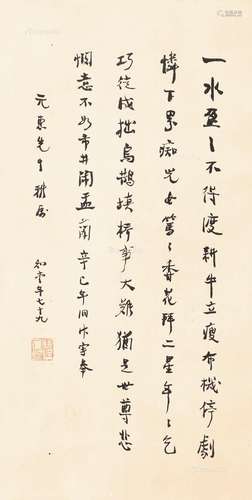 一水盈々不得渡耕牛立瘦布機停劇
憐下界痴兒女篤々香花拜二星年々乞
巧徒成拙烏鵲填橋事大難猶是世尊悲
憫意不如市井鬧盂蘭辛巳年旧作寄奉
先生雅属
知堂年七十九